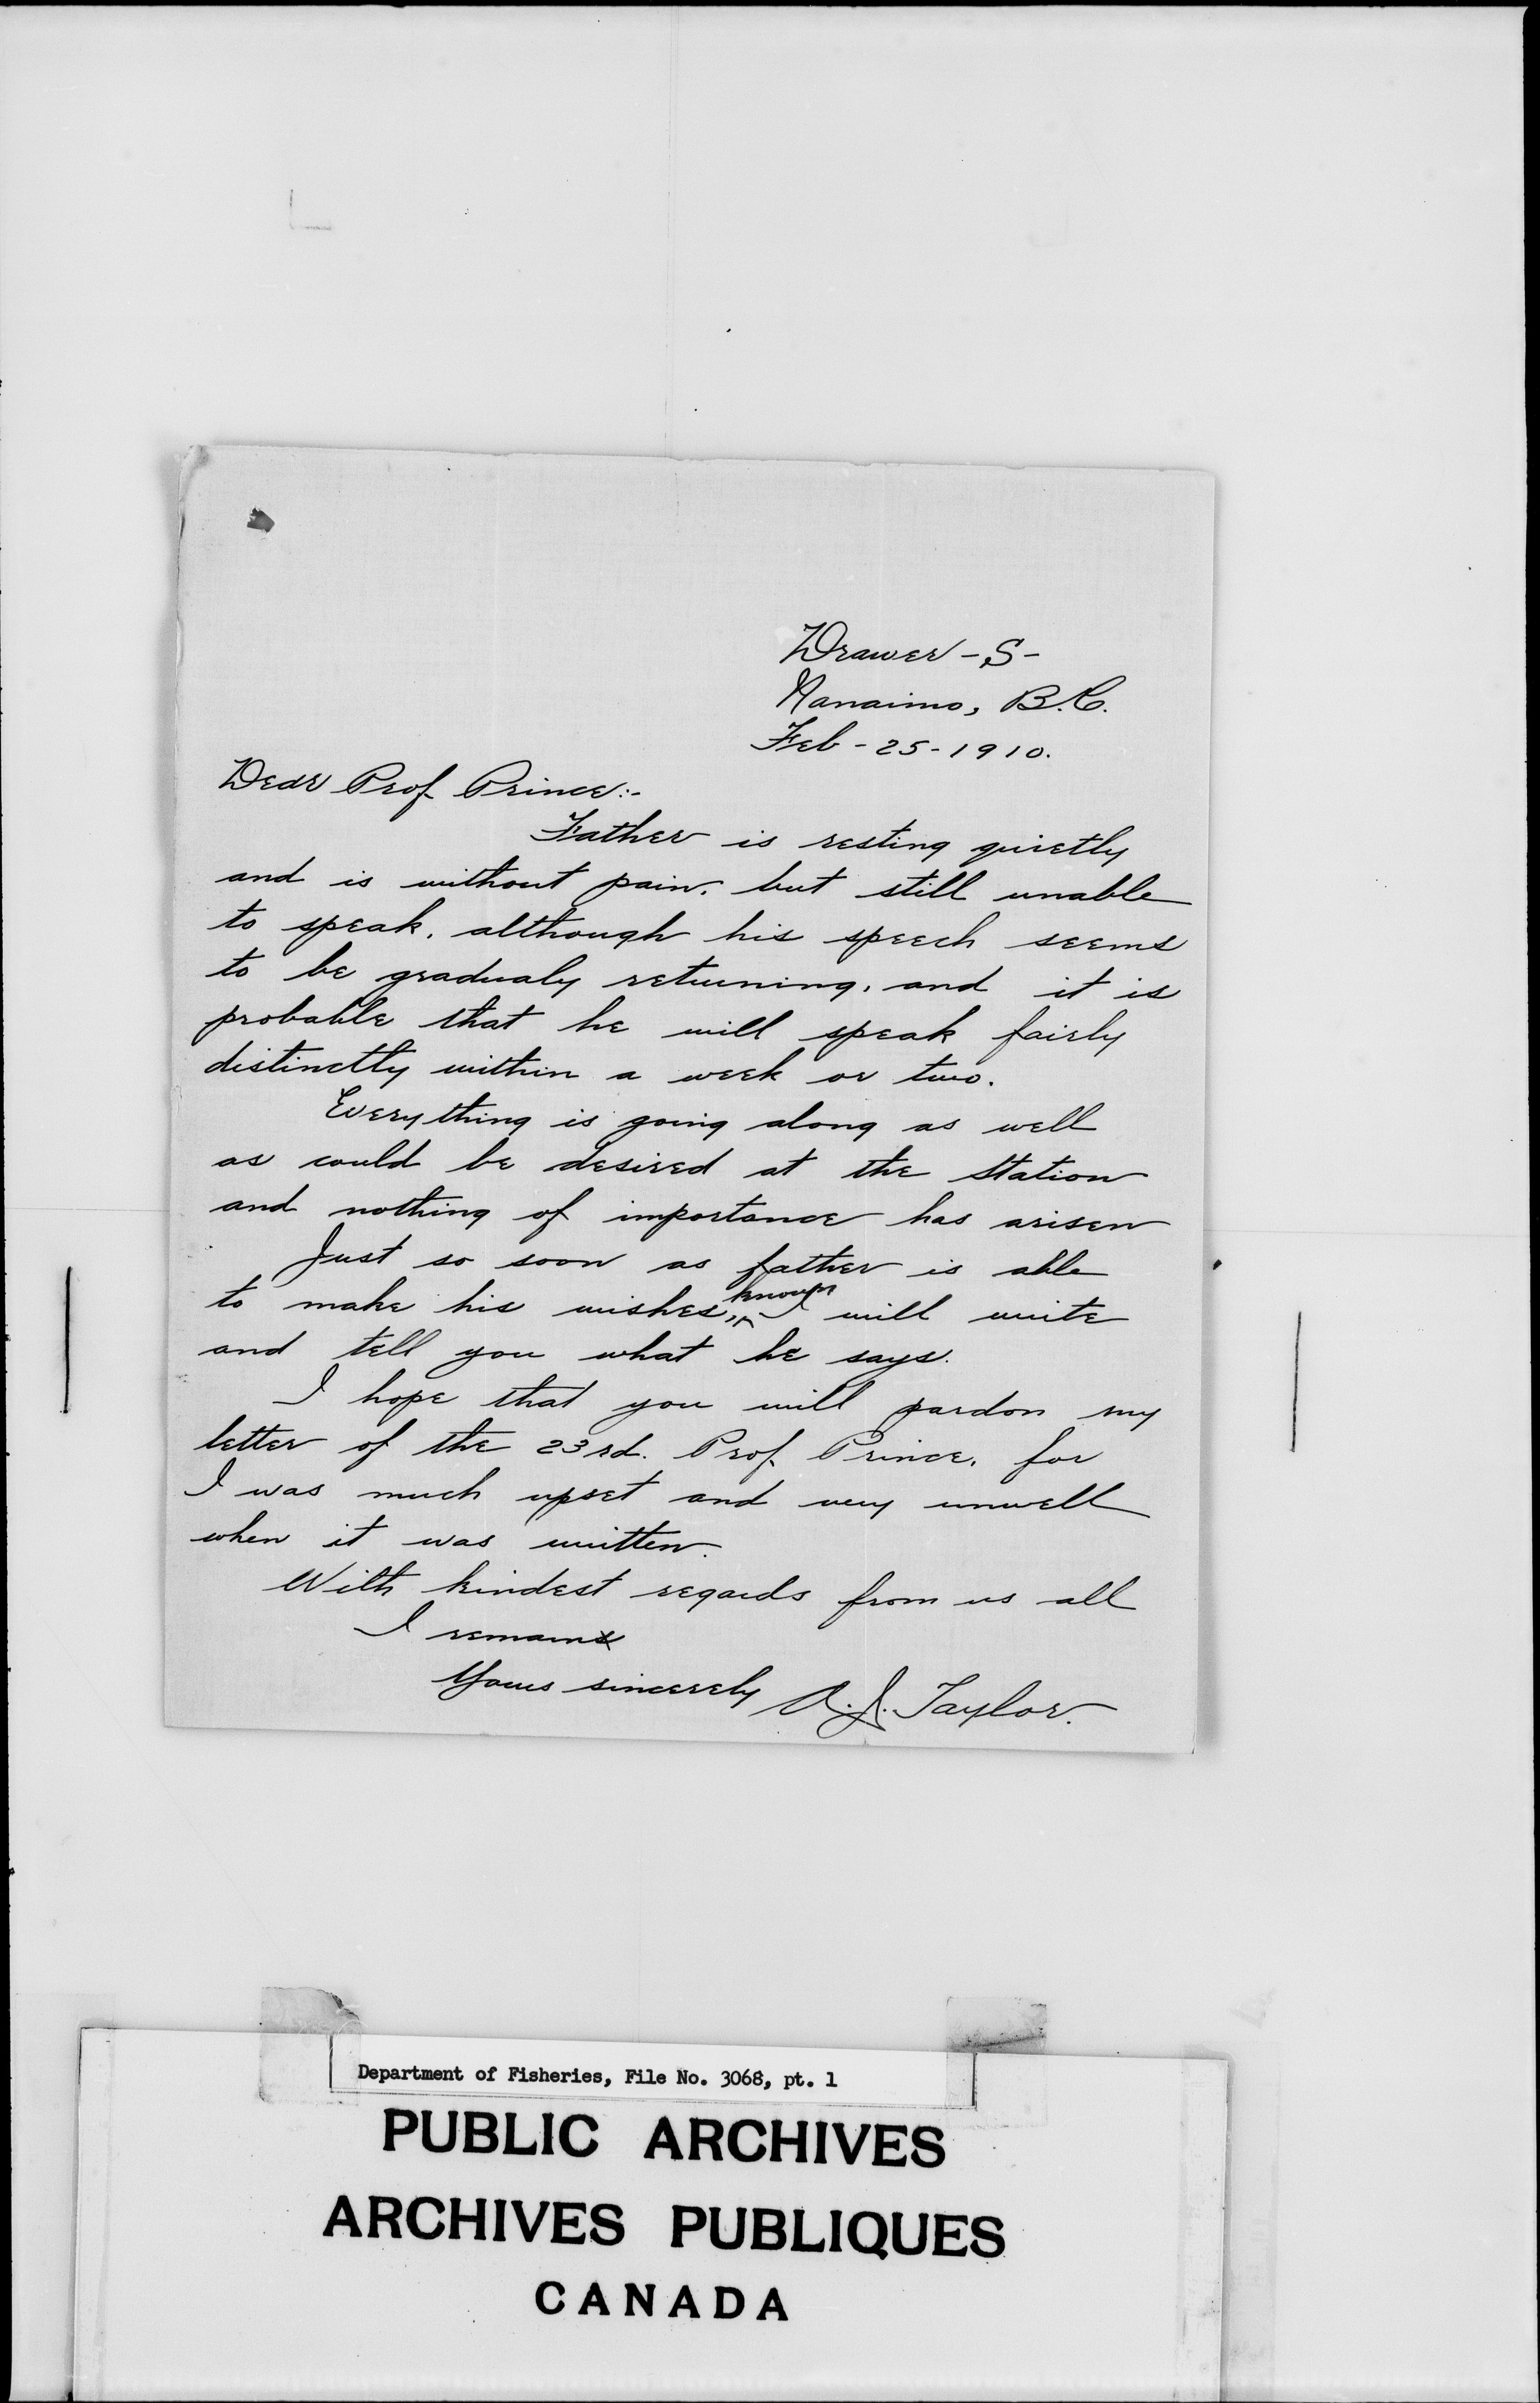 Drawer - S -
Nanaimo, B.C.
Feb - 25 - 1910.
Dear Prof. Prince:-
Father is resting quietly
and is without pain, but still unable
to speak, although his speech seems
to be gradualy returning, and it is
probable that he will speak fairly
distinctly within a week or two.
Everything is going along as well
as could be desired at the Station
and nothing of importance has arisen
Just so soon as father is able
to make his wishes, known I will write
and tell you what he says.
I hope that you will pardon my
letter of the 23rd. Prof. Prince, for
I was much upset and very unwell
when it was written.
With kindest regards from us all
I remain
Yours sincerely A.J. Taylor.
Department of Fisheries, File No. 3068, pt. 1
PUBLIC ARCHIVES
ARCHIVES PUBLIQUES
CANADA